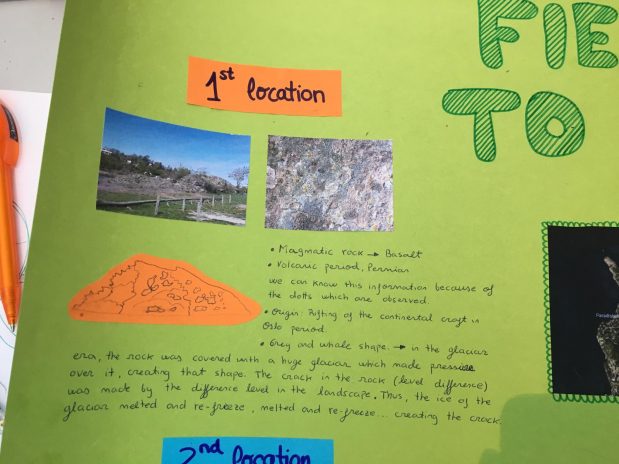 FIE
TO
1st location
• Magmatic rock → Basalt
• Volcanic period, Permian
we can know this information because of
the dotts which are observed.
• Origin: Rifting of the continental craft in
Oslo period
• Grey and whale shape. → in the glaciar
era, the rock was covered with a huge glaciar which made pressure
over it, creating that shape. The crack in the rock (level difference)
was made by the difference level in the landscape. Thus, the ice of the
glaciar melted and re-freeze, melted and re-freeze... creating the crack.
2nd location